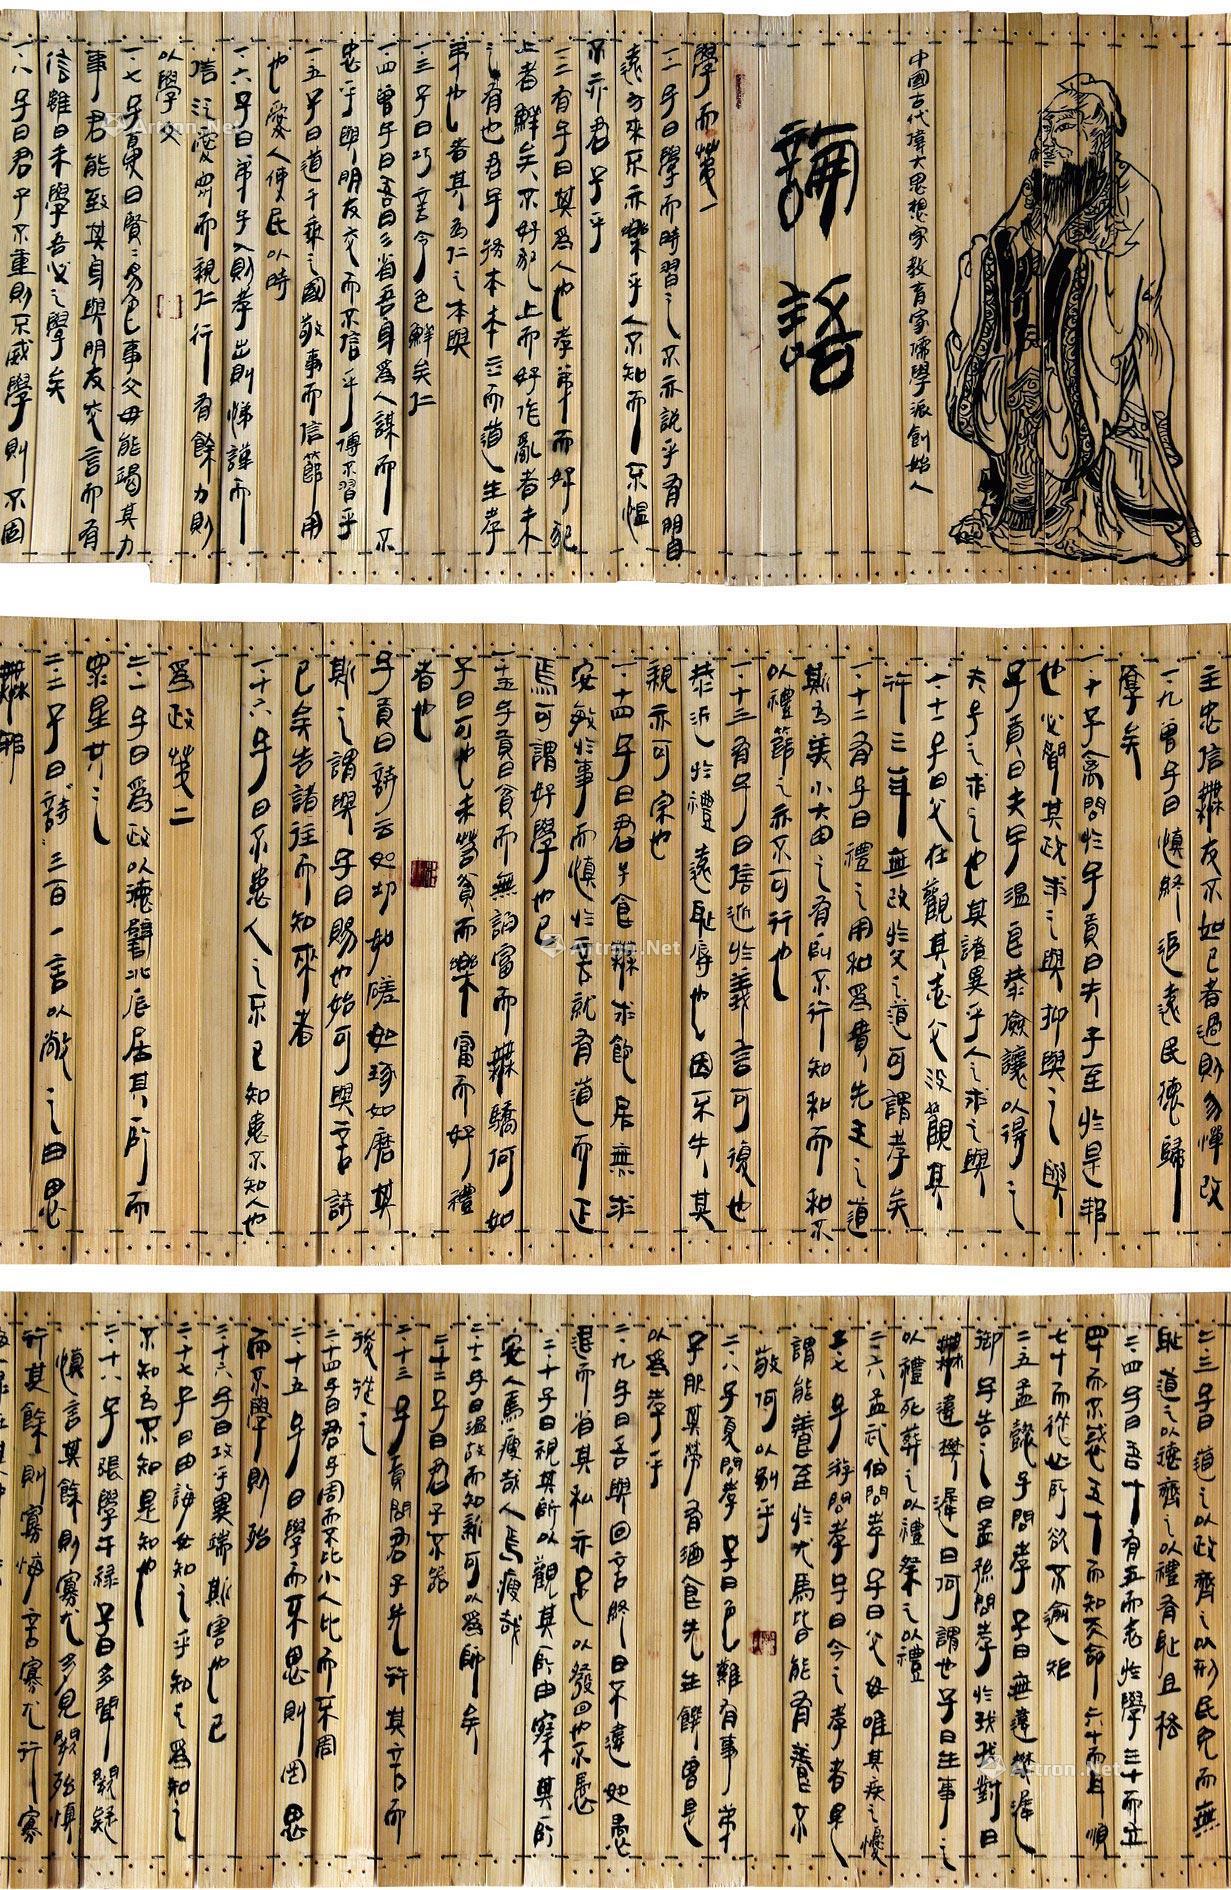 中國古代偉大思想家教育家儒學派創始人
論語
學而第一
一·一子曰學而時習之不亦説乎有朋自
遠方來不亦樂乎人不知而不愠
不亦君子乎
一·二有子曰其爲人也孝弟而好犯
上者鮮矣不好犯上而好作亂者未
之有也君子務本本立而道生孝
弟也者其爲仁之本與
一·三子曰巧言令色鮮矣仁
一·四曾子曰吾日三省吾身爲人謀而不
忠乎與朋友交而不信乎傳不習乎
一·五子曰道千乘之國敬事而信節用
也愛人使民以時
一·六子曰弟子入則孝出則悌謹而
信汎愛衆而親仁行有餘力則
以學文
一·七子夏曰賢賢易色事父母能竭其力
事君能致其身與朋友交言而有
信雖曰未學吾必之學矣
一·八子曰君子不重則不威學則不固
主忠信無友不如己者過則勿憚改
一·九曾子曰慎終追遠民德歸
厚矣
一·十子禽問於子貢曰夫子至於是邦
也必聞其政求之與抑與之與
子貢曰夫子温良恭儉讓以得之
夫子之求之也其諸異乎人之求之與
一·十一子曰父在觀其志父没觀其
行三年無改於父之道可謂孝矣
一·十二有子曰禮之用和爲貴先王之道
斯爲美小大由之有所不行知和而和不
以禮節之亦不可行也
一·十三有子曰信近於義言可復也
恭近於禮遠恥辱也因不失其
親亦可宗也
一·十四子曰君子食無求飽居無求
安敏於事而慎於言就有道而正
焉可謂好學也已
一·十五子貢曰貧而無諂富而無驕何如
子曰可也未若貧而樂富而好禮
者也
子貢曰詩云如切如磋如琢如磨其
斯之謂與子曰賜也始可與言詩
已矣告諸往而知來者
一·十六子曰不患人之不己知患不知人也
爲政第二
二·一子曰爲政以德譬北辰居其所而
衆星共之
二·二子曰詩三百一言以蔽之曰思
無邪
二·三子曰道之以政齊之以刑民免而無
恥道之以德齊之以禮有恥且格
二·四子曰吾十有五而志於學三十而立
四十而不惑五十而知天命六十而耳順
七十而從心所欲不逾矩
二·五孟懿子問孝子曰無違樊遲
御子告之曰孟孫問孝於我我對曰
無違樊遲曰何謂也子曰生事之
以禮死葬之以禮祭之以禮
二·六孟武伯問孝子曰父母唯其疾之憂
二·七子游問孝子曰今之孝者是
謂能養至於犬馬皆能有養不
敬何以别乎
二·八子夏問孝子曰色難有事弟
子服其勞有酒食先生饌曾是
以爲孝乎
二·九子曰吾與回言終日不違如愚
退而省其私亦足以發回也不愚
二·十子曰視其所以觀其所由察其所
安人焉廋哉人焉廋哉
二·十一子曰温故而知新可以爲師矣
二·十二子曰君子不器
二·十三子貢問君子先行其言而
後從之
二·十四子曰君子周而不比小人比而不周
二·十五子曰學而不思則罔思
而不學則殆
二·十六子曰攻乎異端斯害也已
二·十七子曰由誨女知之乎知之爲知之
不知爲不知是知也
二·十八子張學干禄子曰多聞闕疑
慎言其餘則寡尤多見闕殆慎
行其餘則寡悔言寡尤行寡
Artron.Net